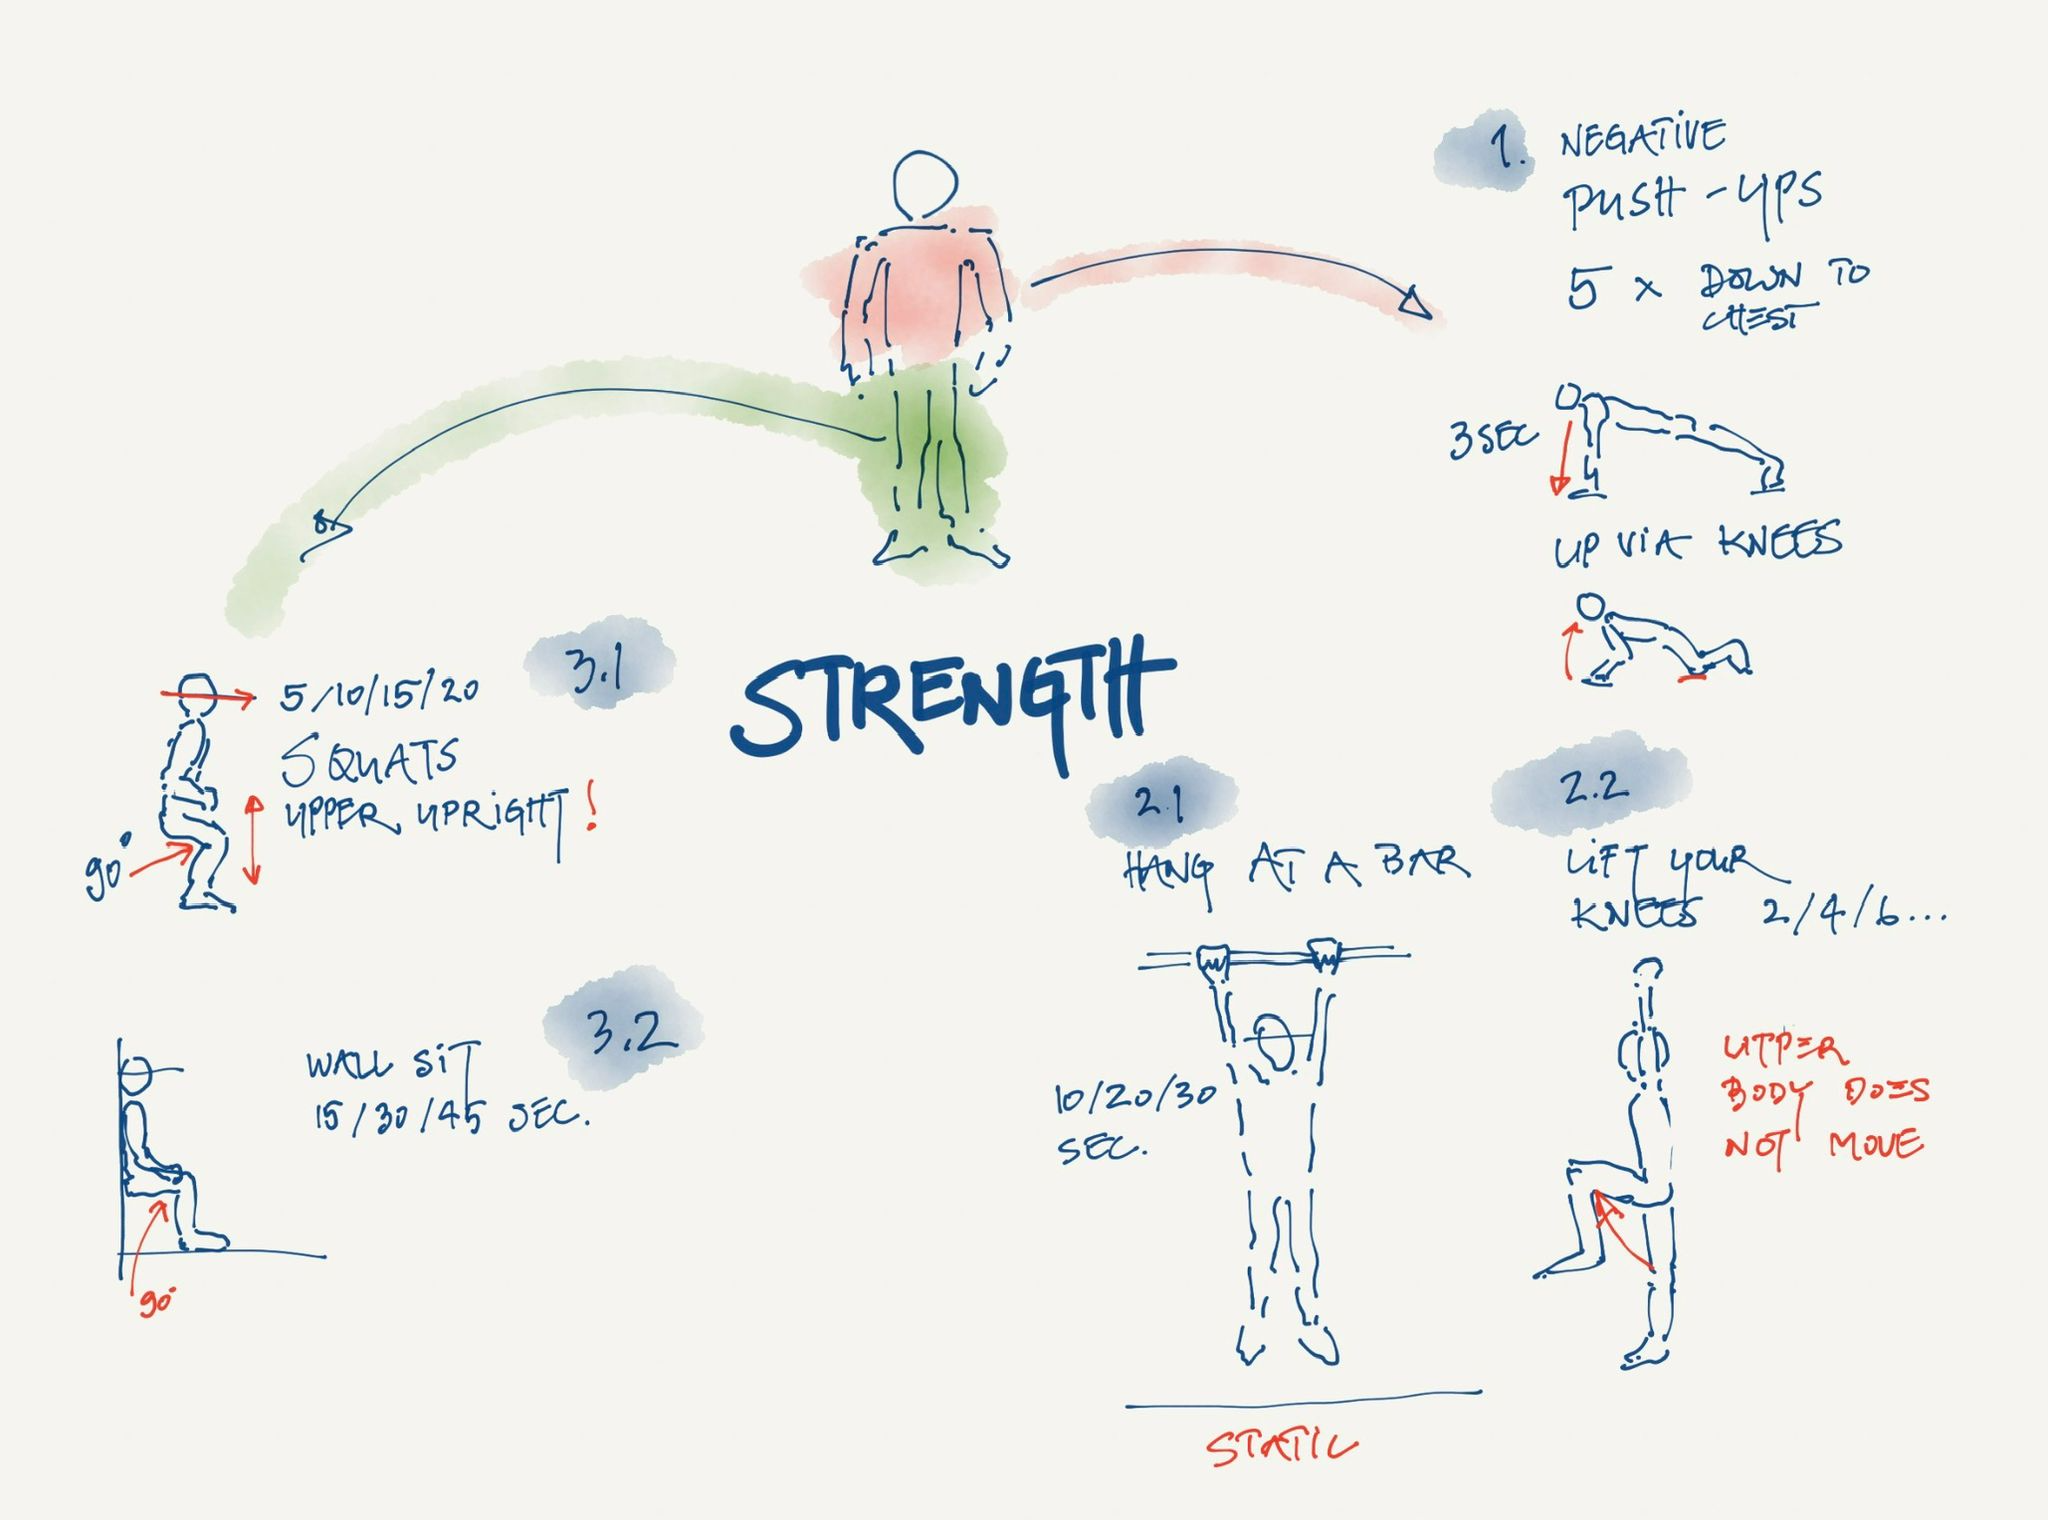 1. NEGATIVE
PUSH-UPS
5 x DOWN TO
CHEST
3 SEC
UP VIA KNEES
3.1
5/10/15/20
SQUATS
UPPER UPRIGHT!
90°
STRENGTH
2.1
HANG AT A BAR
10/20/30
SEC.
STATIC
2.2
LIFT YOUR
KNEES 2/4/6...
UPPER
BODY DOES
NOT MOVE
3.2
WALL SIT
15/30/45 SEC.
90°